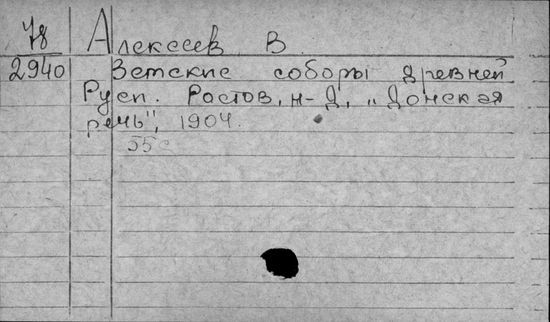 78 Алексеев В.
2940 Земские соборы древней
Руси. Ростов, н-Д, „Донская
речь", 1904.
55с